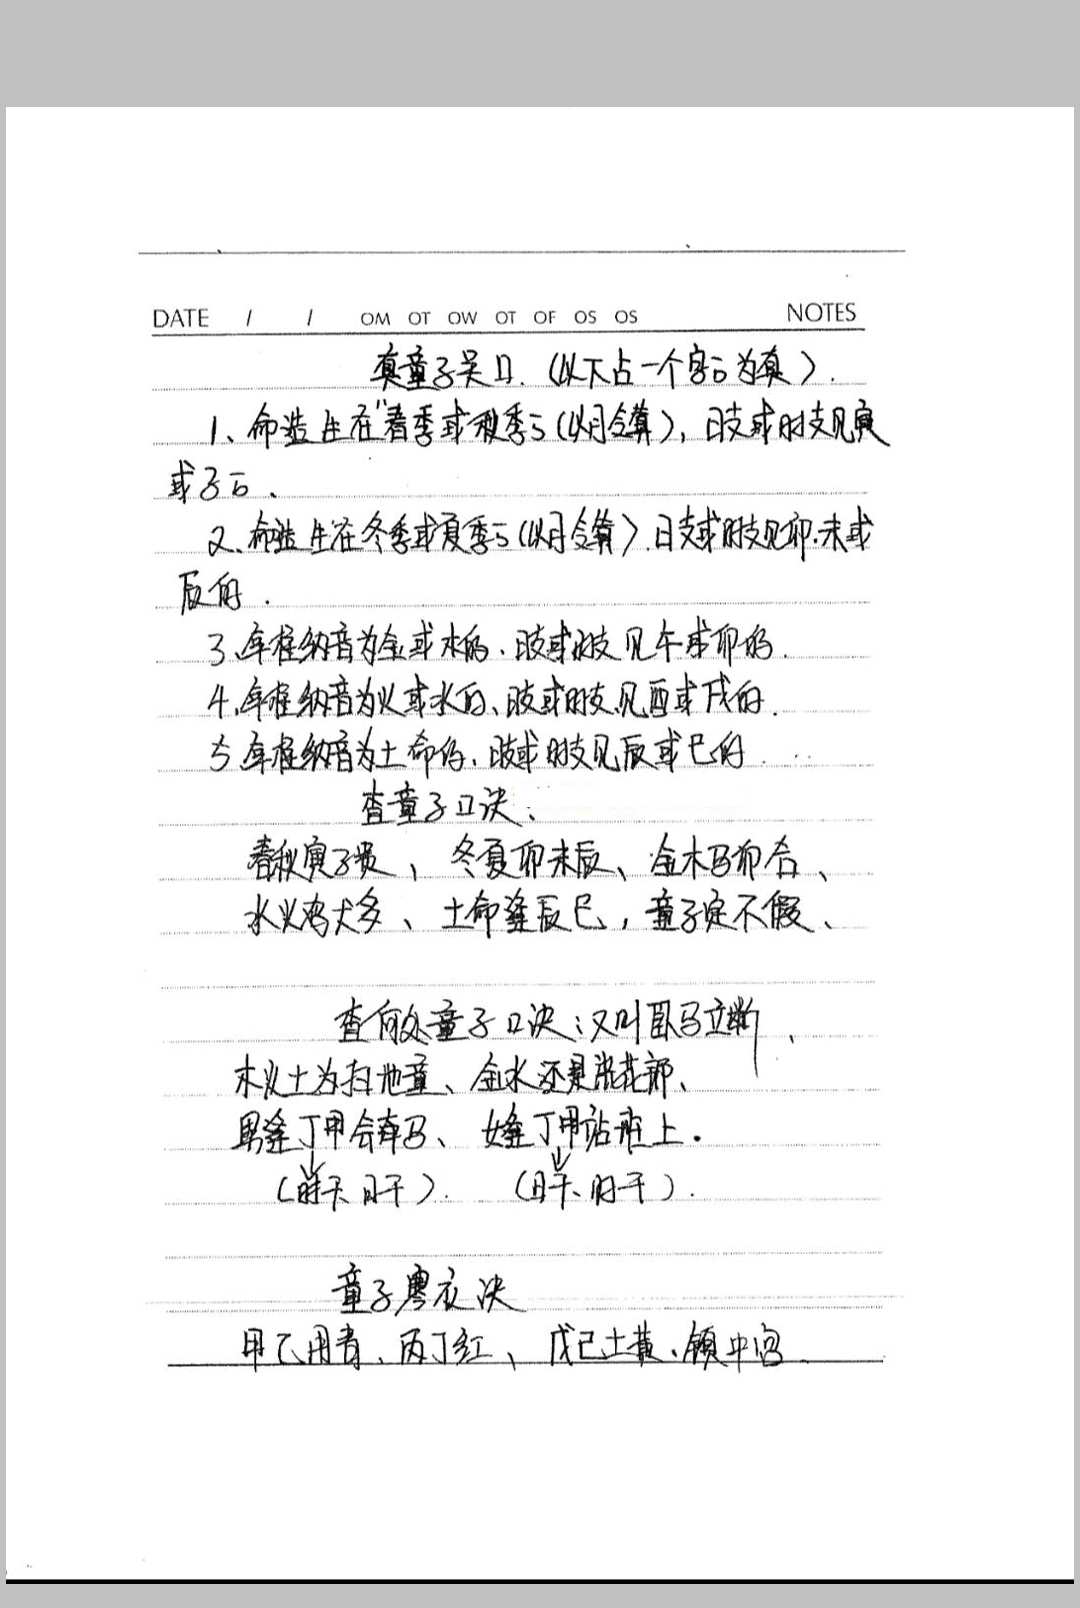 DATE / / OM OT OW OT OF OS OS NOTES
真童子 (以下占一个字的为真).
1、命造生在"春季或秋季的(以月令算), 日支或时支见寅
或子的、
2、命造生在冬季或夏季的(以月令算)、日支或时支见卯、未或
辰的.
3、年柱纳音为金或木的、日支或时支见午或卯的.
4、年柱纳音为火或水的、日支或时支见酉或戌的.
5 年柱纳音为土命的、日支或时支见辰或巳的.
查童子口决:
春秋寅子贵、冬夏卯未辰、金木马卯合、
水火鸡犬多、土命逢辰巳, 童子定不假、
查何处童子口决: 又叫 马立断、
木火土为扫地童、金水还是散花郎、
男逢丁甲会牵马、女逢丁甲站班上.
(时干、日干). (日干、时干).
童子 衣决
甲乙用青、丙丁红、戊己土黄、镇中宫.